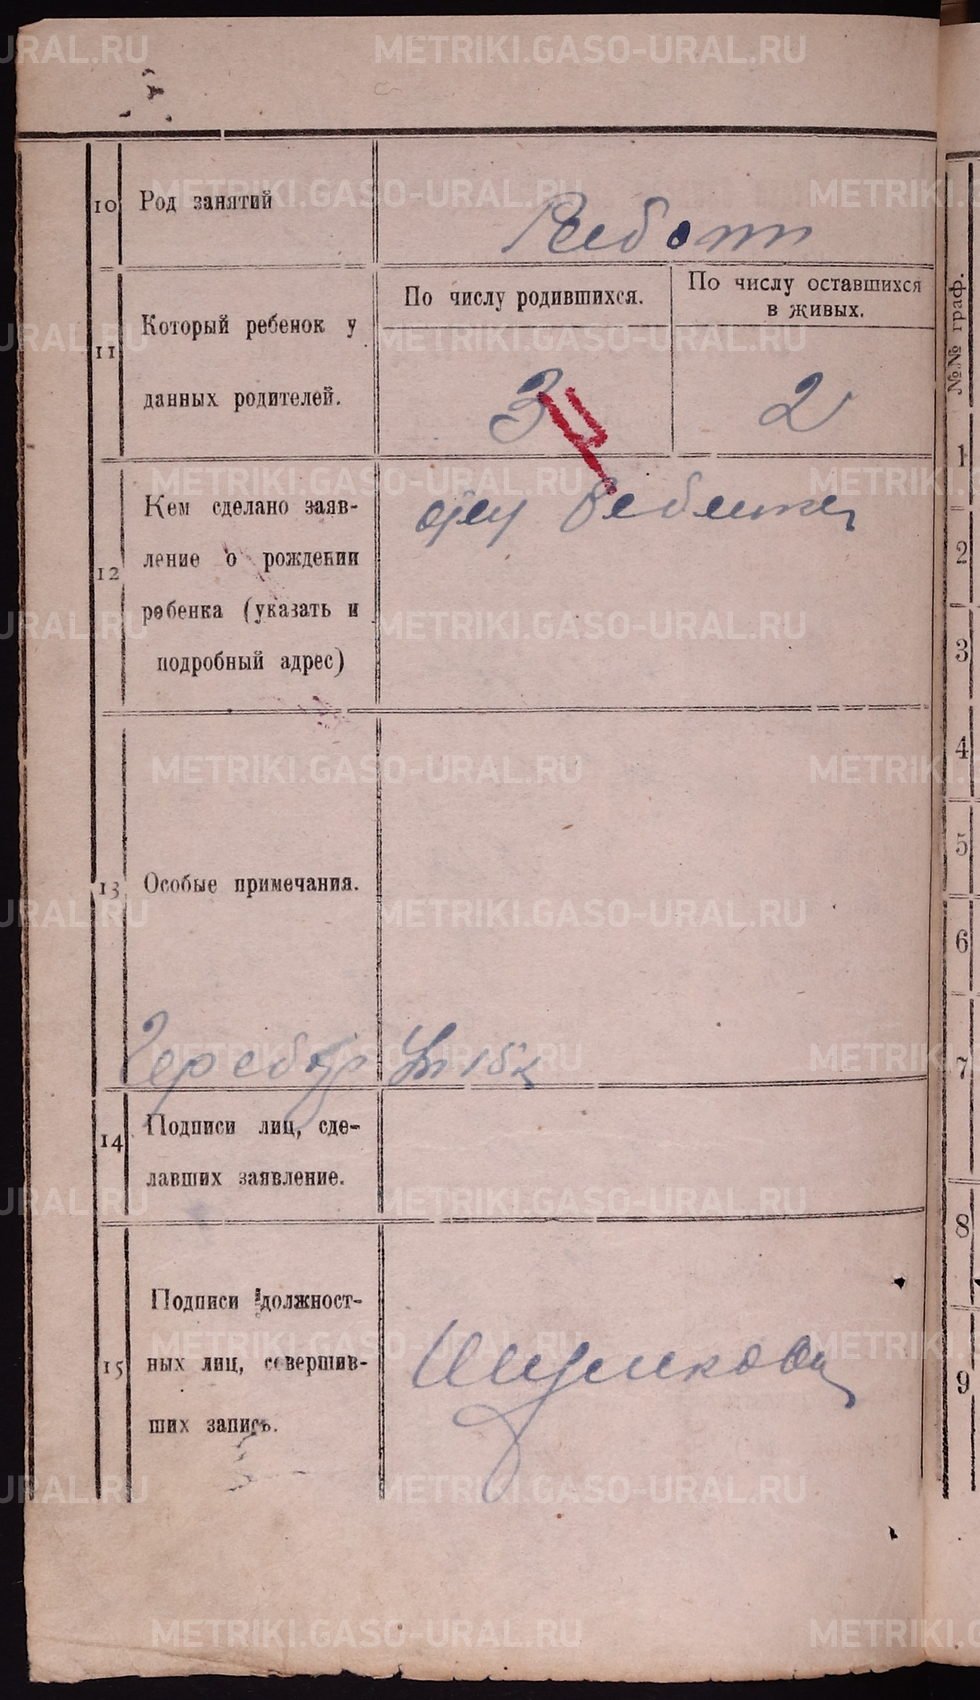 10 Род занятий
Работ
11 Который ребенок у
данных родителей.
По числу родившихся.
По числу оставшихся
в живых.
3
2
12 Кем сделано заяв-
ление о рождении
ребенка (указать и
подробный адрес)
13 Особые примечания.
14 Подписи лиц, сде-
лавших заявление.
15 Подписи должност-
ных лиц, совершив-
ших запись.
№№ граф.
1
2
3
4
5
6
7
8
9
METRIKI.GASO-URAL.RU